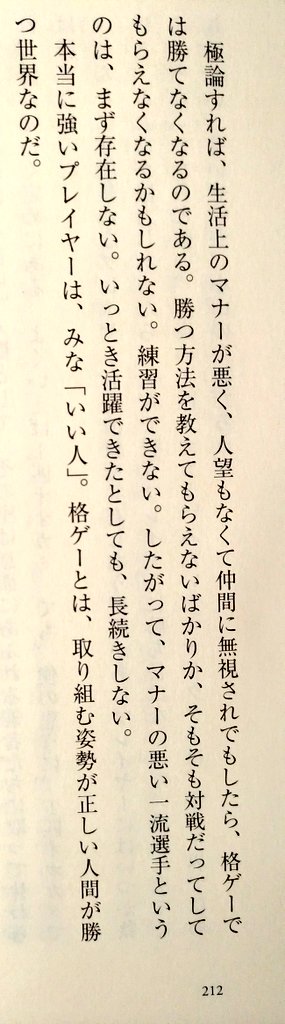 極論すれば、生活上のマナーが悪く、人望もなくて仲間に無視されでもしたら、格ゲーで
は勝てなくなるのである。勝つ方法を教えてもらえないばかりか、そもそも対戦だってして
もらえなくなるかもしれない。練習ができない。したがって、マナーの悪い一流選手という
のは、まず存在しない。いっとき活躍できたとしても、長続きしない。
本当に強いプレイヤーは、みな「いい人」。格ゲーとは、取り組む姿勢が正しい人間が勝
つ世界なのだ。
212